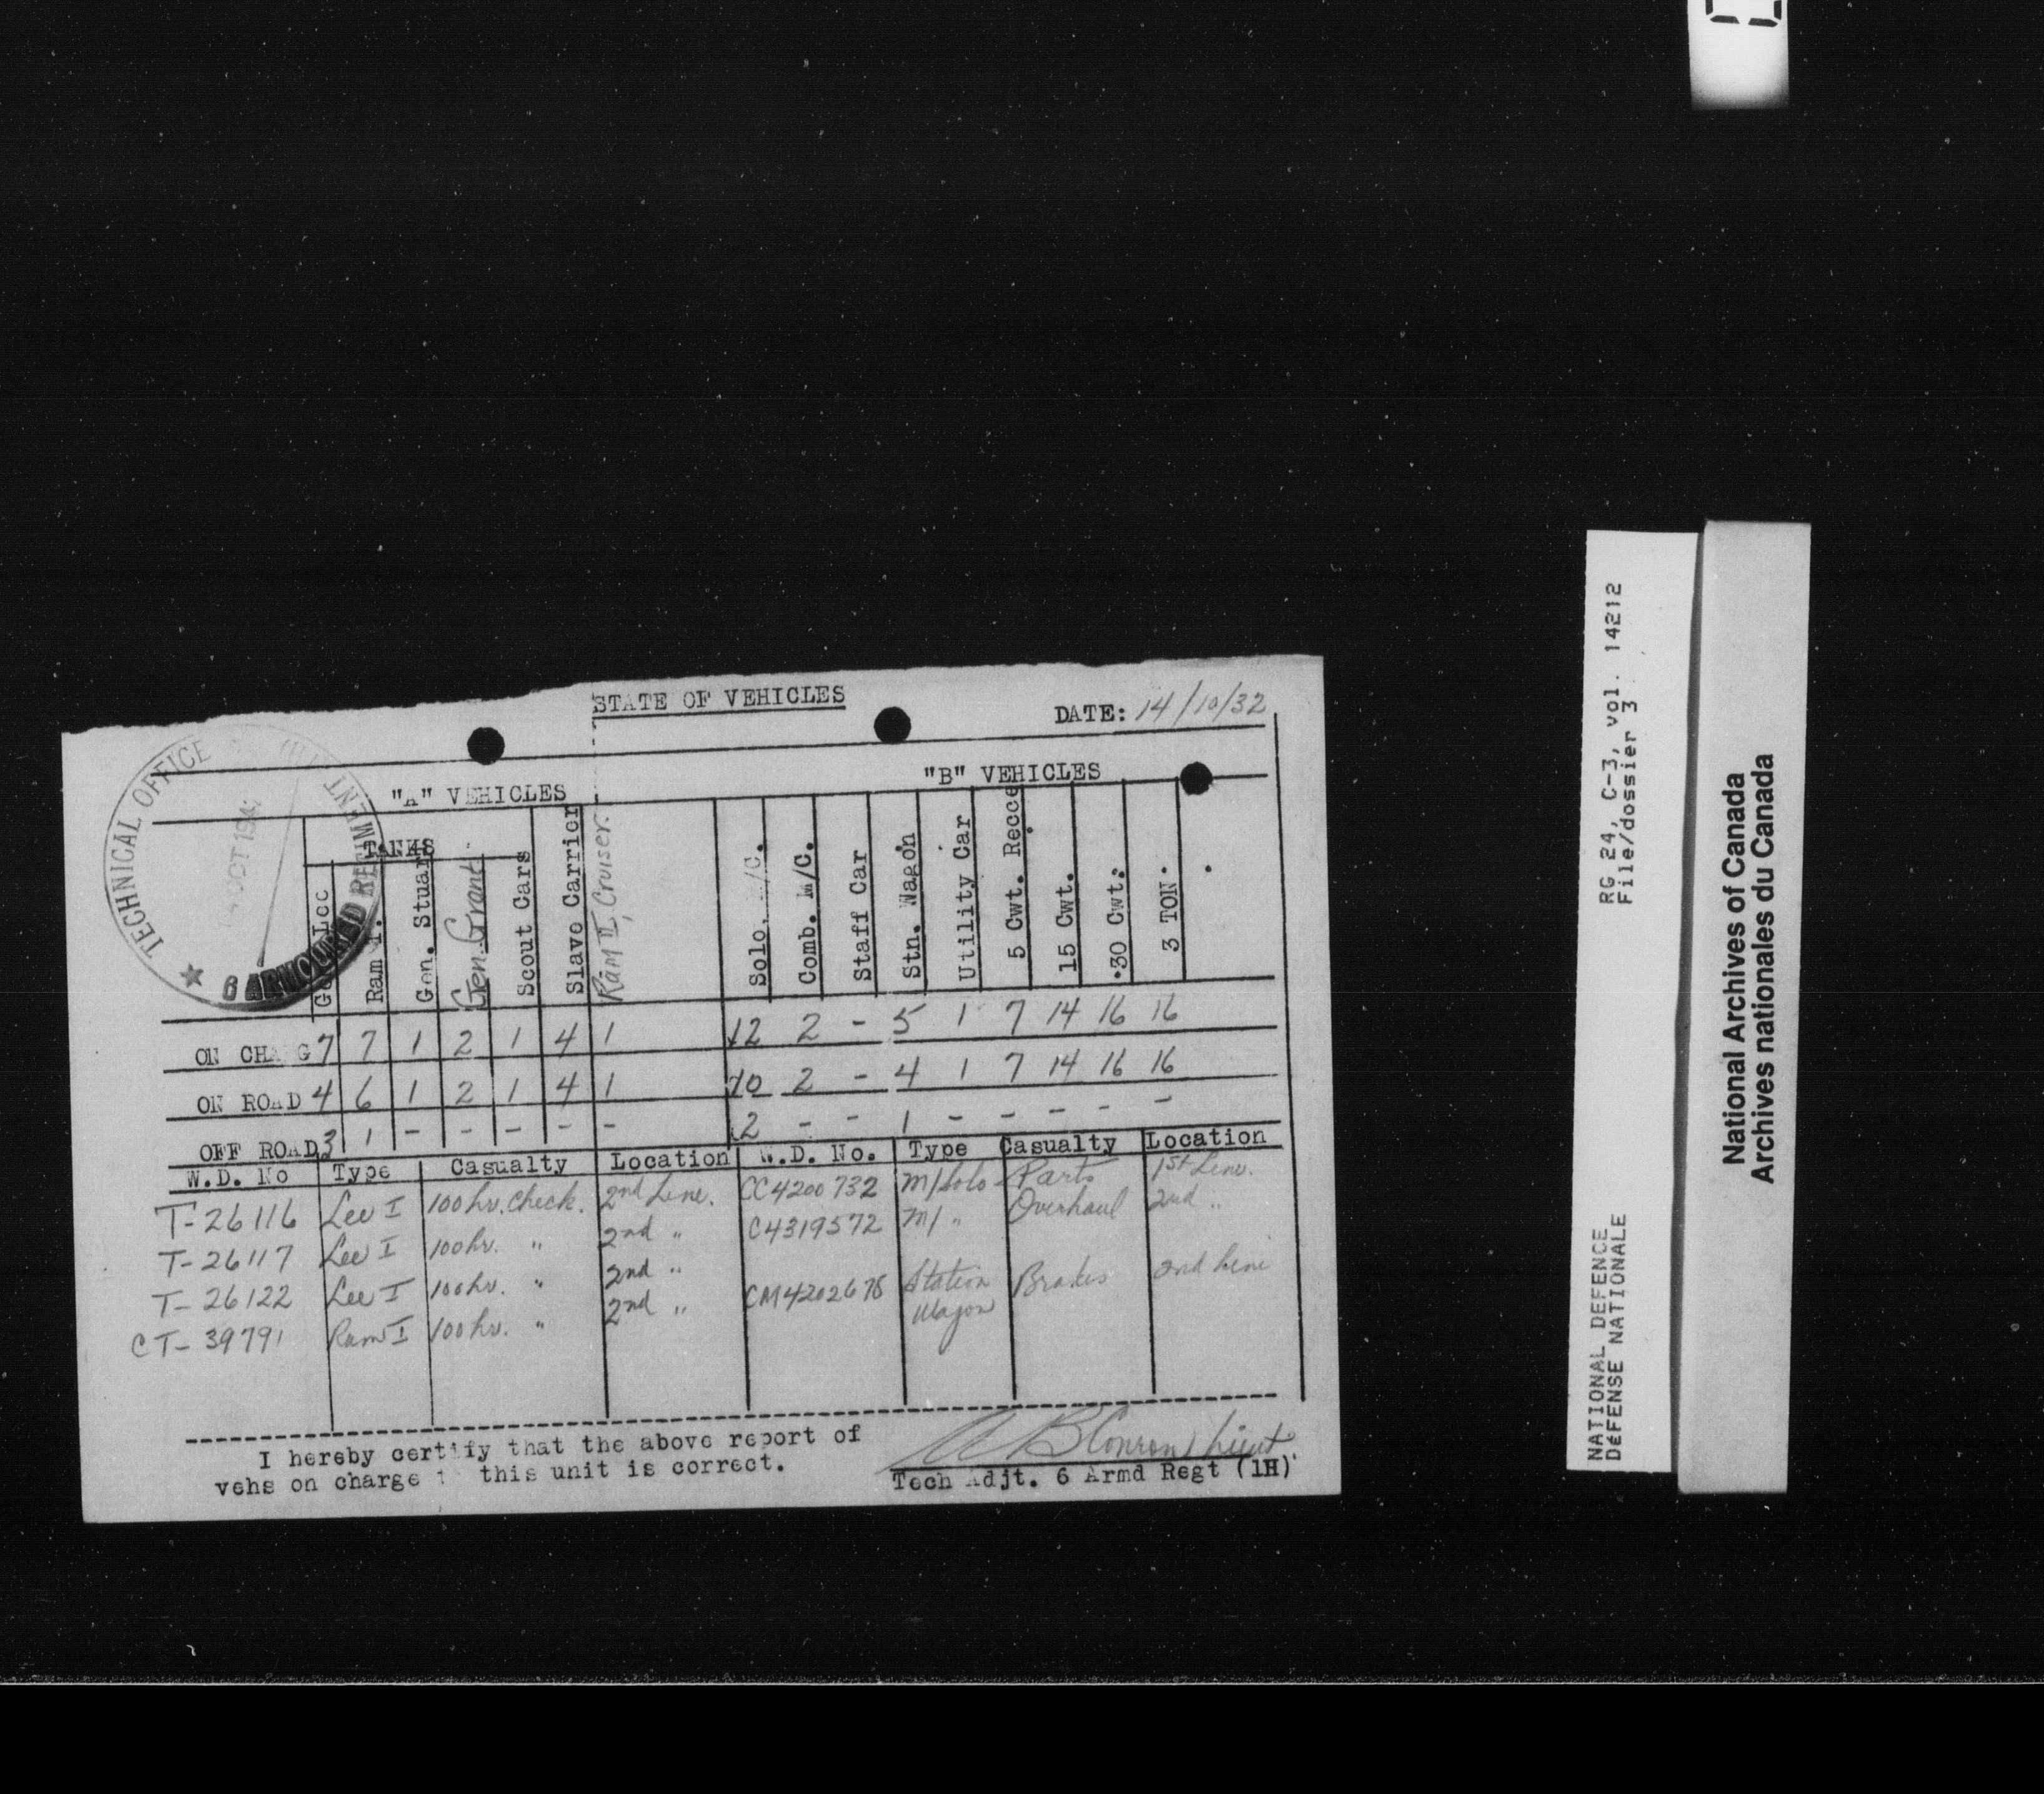 STATE OF VEHICLES
DATE: 14/10/32
TECHNICAL OFFICE
6 ARMOURED REGIMENT
OCT 194
"A" VEHICLES
"B" VEHICLES
TANKS
Gen. Lee
Ram I.
Gen. Stuart
Gen. Grant
Scout Cars
Slave Carrier
Ram II, Cruiser.
Solo. M/C.
Comb. M/C.
Staff Car
Stn. Wagon
Utility Car
5 Cwt. Recce
15 Cwt.
30 Cwt.
3 TON.
ON CHARG 7 7 1 2 1 4 1 12 2 - 5 1 7 14 16 16
ON ROAD 4 6 1 2 1 4 1 10 2 - 4 1 7 14 16 16
OFF ROAD 3 1 - - - - - 2 - - 1 - - - - -
W.D. No Type Casualty Location W.D. No. Type Casualty Location
T-26116 Lee I 100 hr. check. 2nd Line. CC4200732 M/Solo Parts 1st Line.
T-26117 Lee I 100 hr. " 2nd " C4319572 M/ " Overhaul 2nd "
T-26122 Lee I 100 hr. " 2nd " CM4202678 Station Wagon Brakes 2nd Line
CT-39791 Ram I 100 hr. " 2nd "
I hereby certify that the above report of
vehs on charge t this unit is correct.
A B Conron Lieut
Tech Adjt. 6 Armd Regt (1H)
RG 24, C-3, vol. 14212
File/dossier 3
NATIONAL DEFENCE
DÉFENSE NATIONALE
National Archives of Canada
Archives nationales du Canada